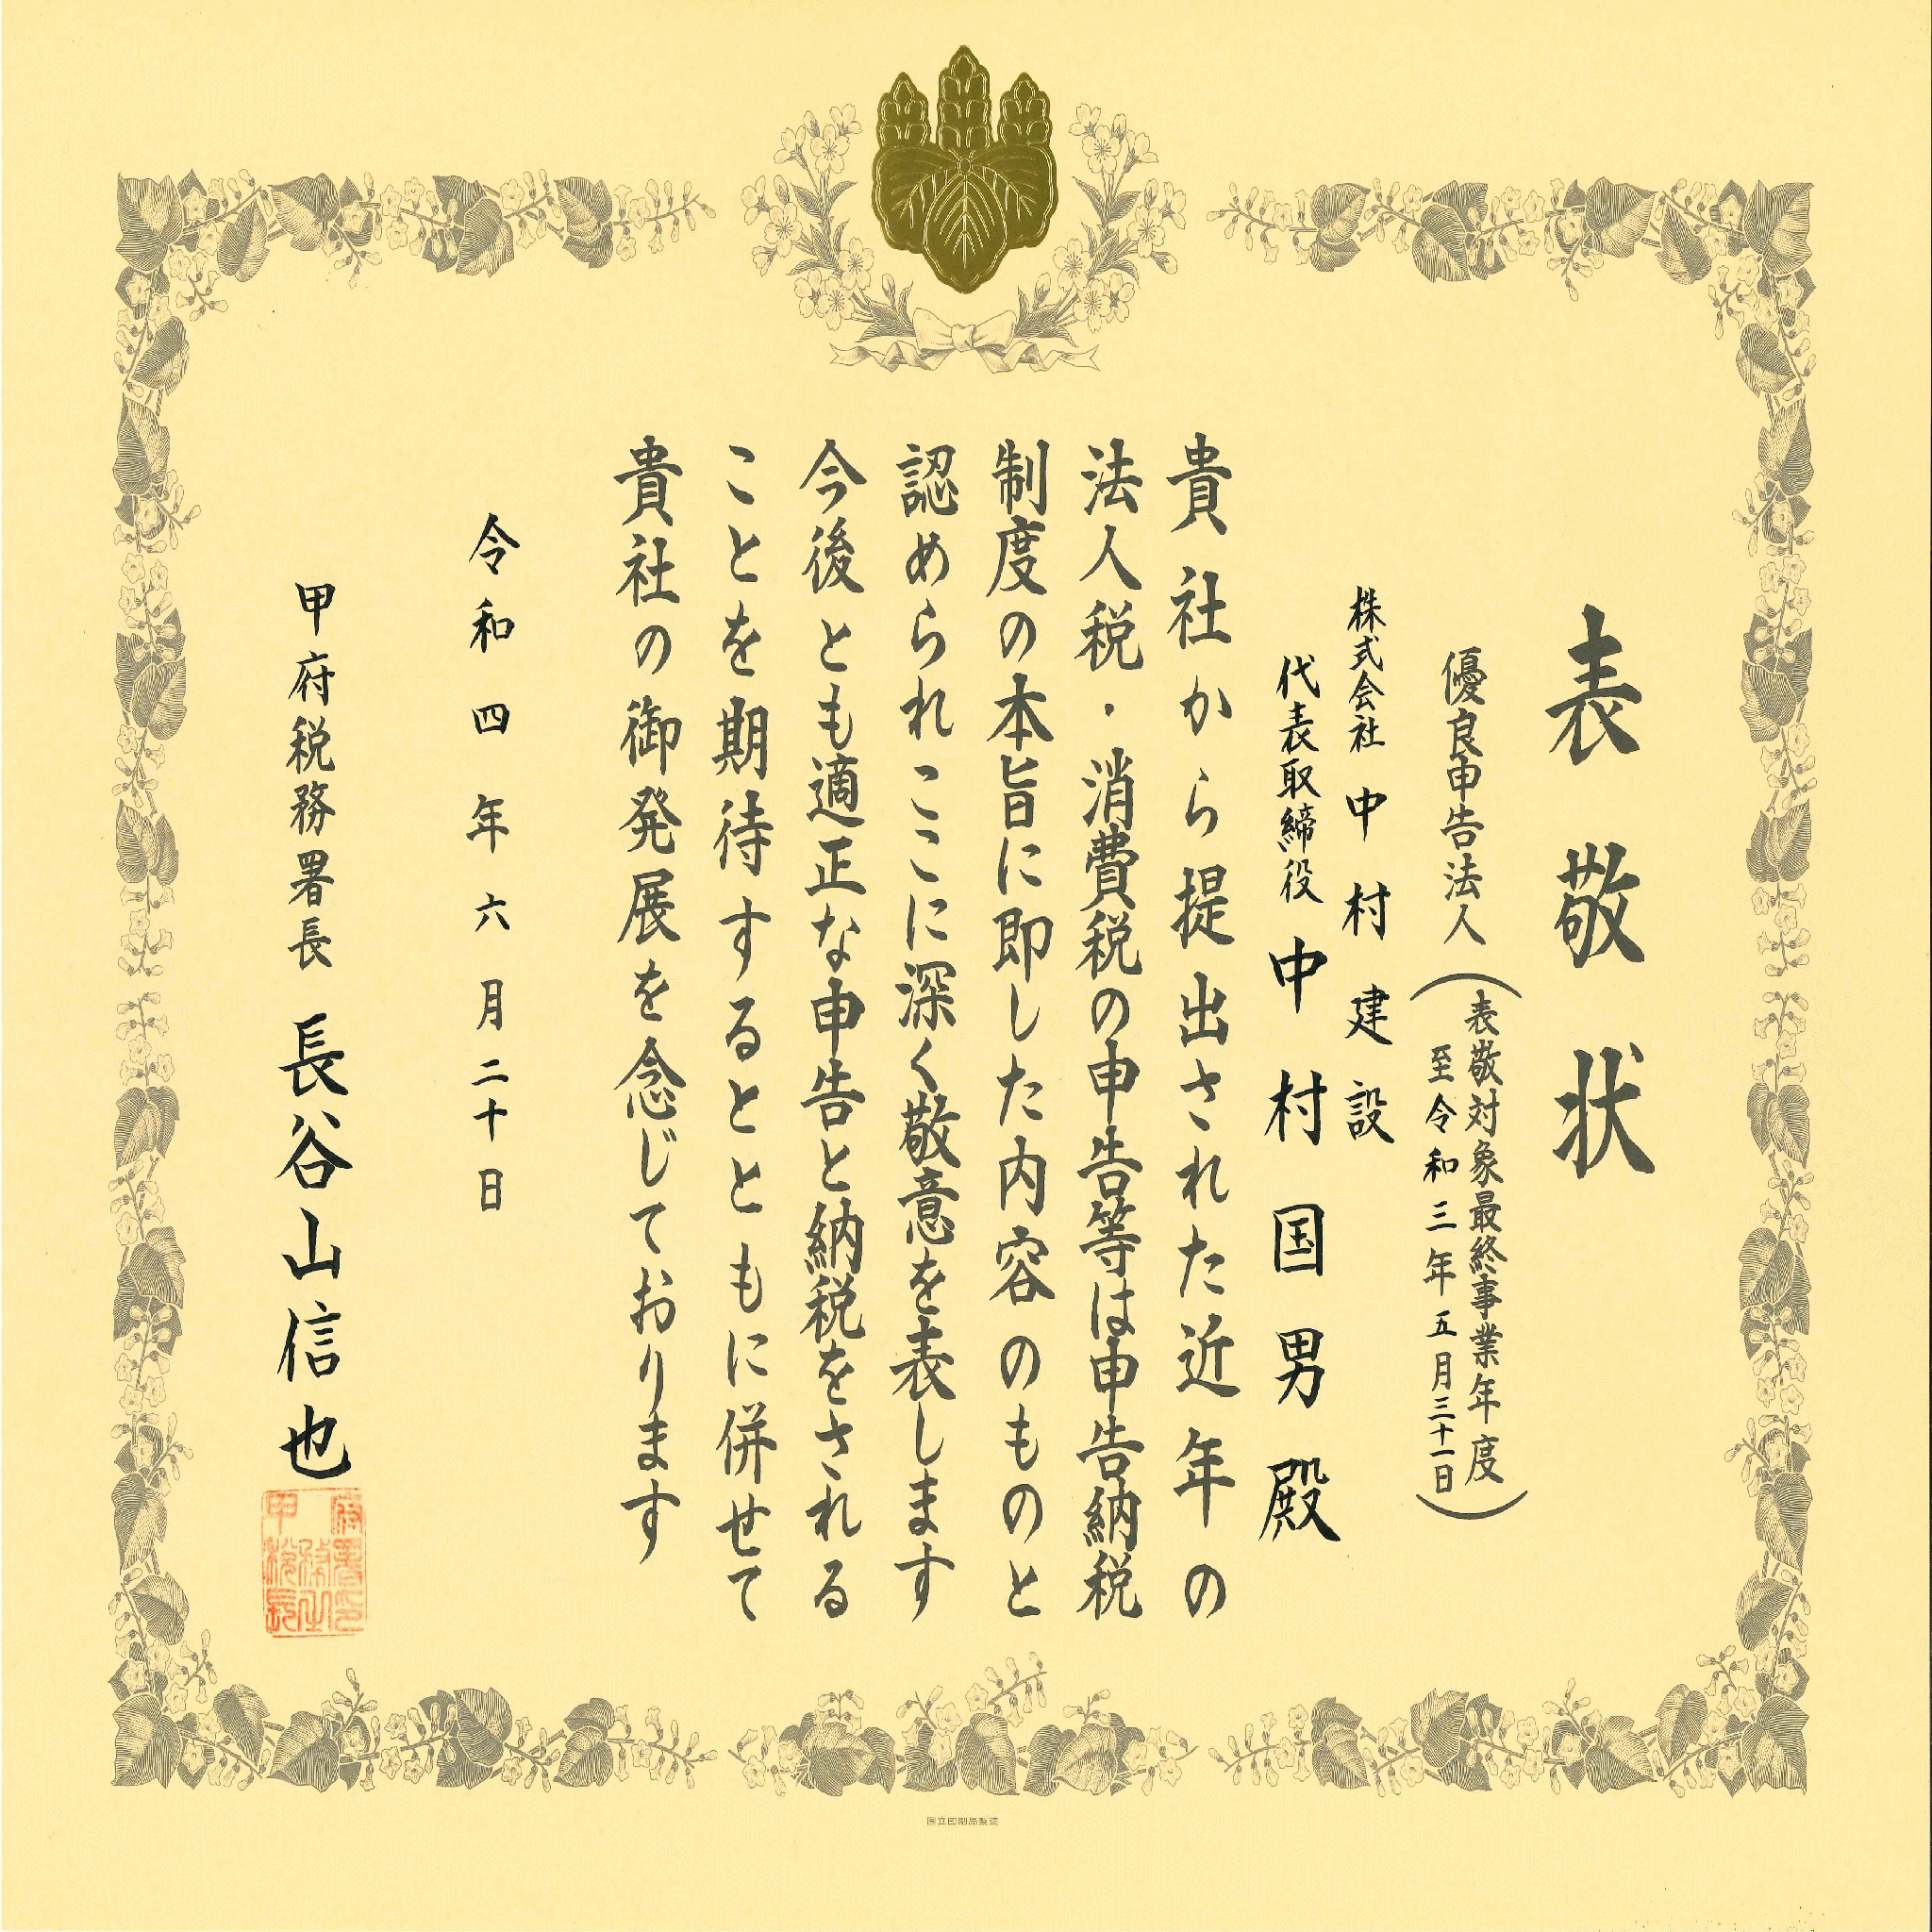 表敬状
優良申告法人
(表敬対象最終事業年度
至令和三年五月三十一日)
株式会社 中村建設
代表取締役 中村国男殿
貴社から提出された近年の
法人税・消費税の申告等は申告納税
制度の本旨に即した内容のものと
認められここに深く敬意を表します
今後とも適正な申告と納税をされる
ことを期待するとともに併せて
貴社の御発展を念じております
令和四年六月二十日
甲府税務署長 長谷山信也
国立印刷局製造